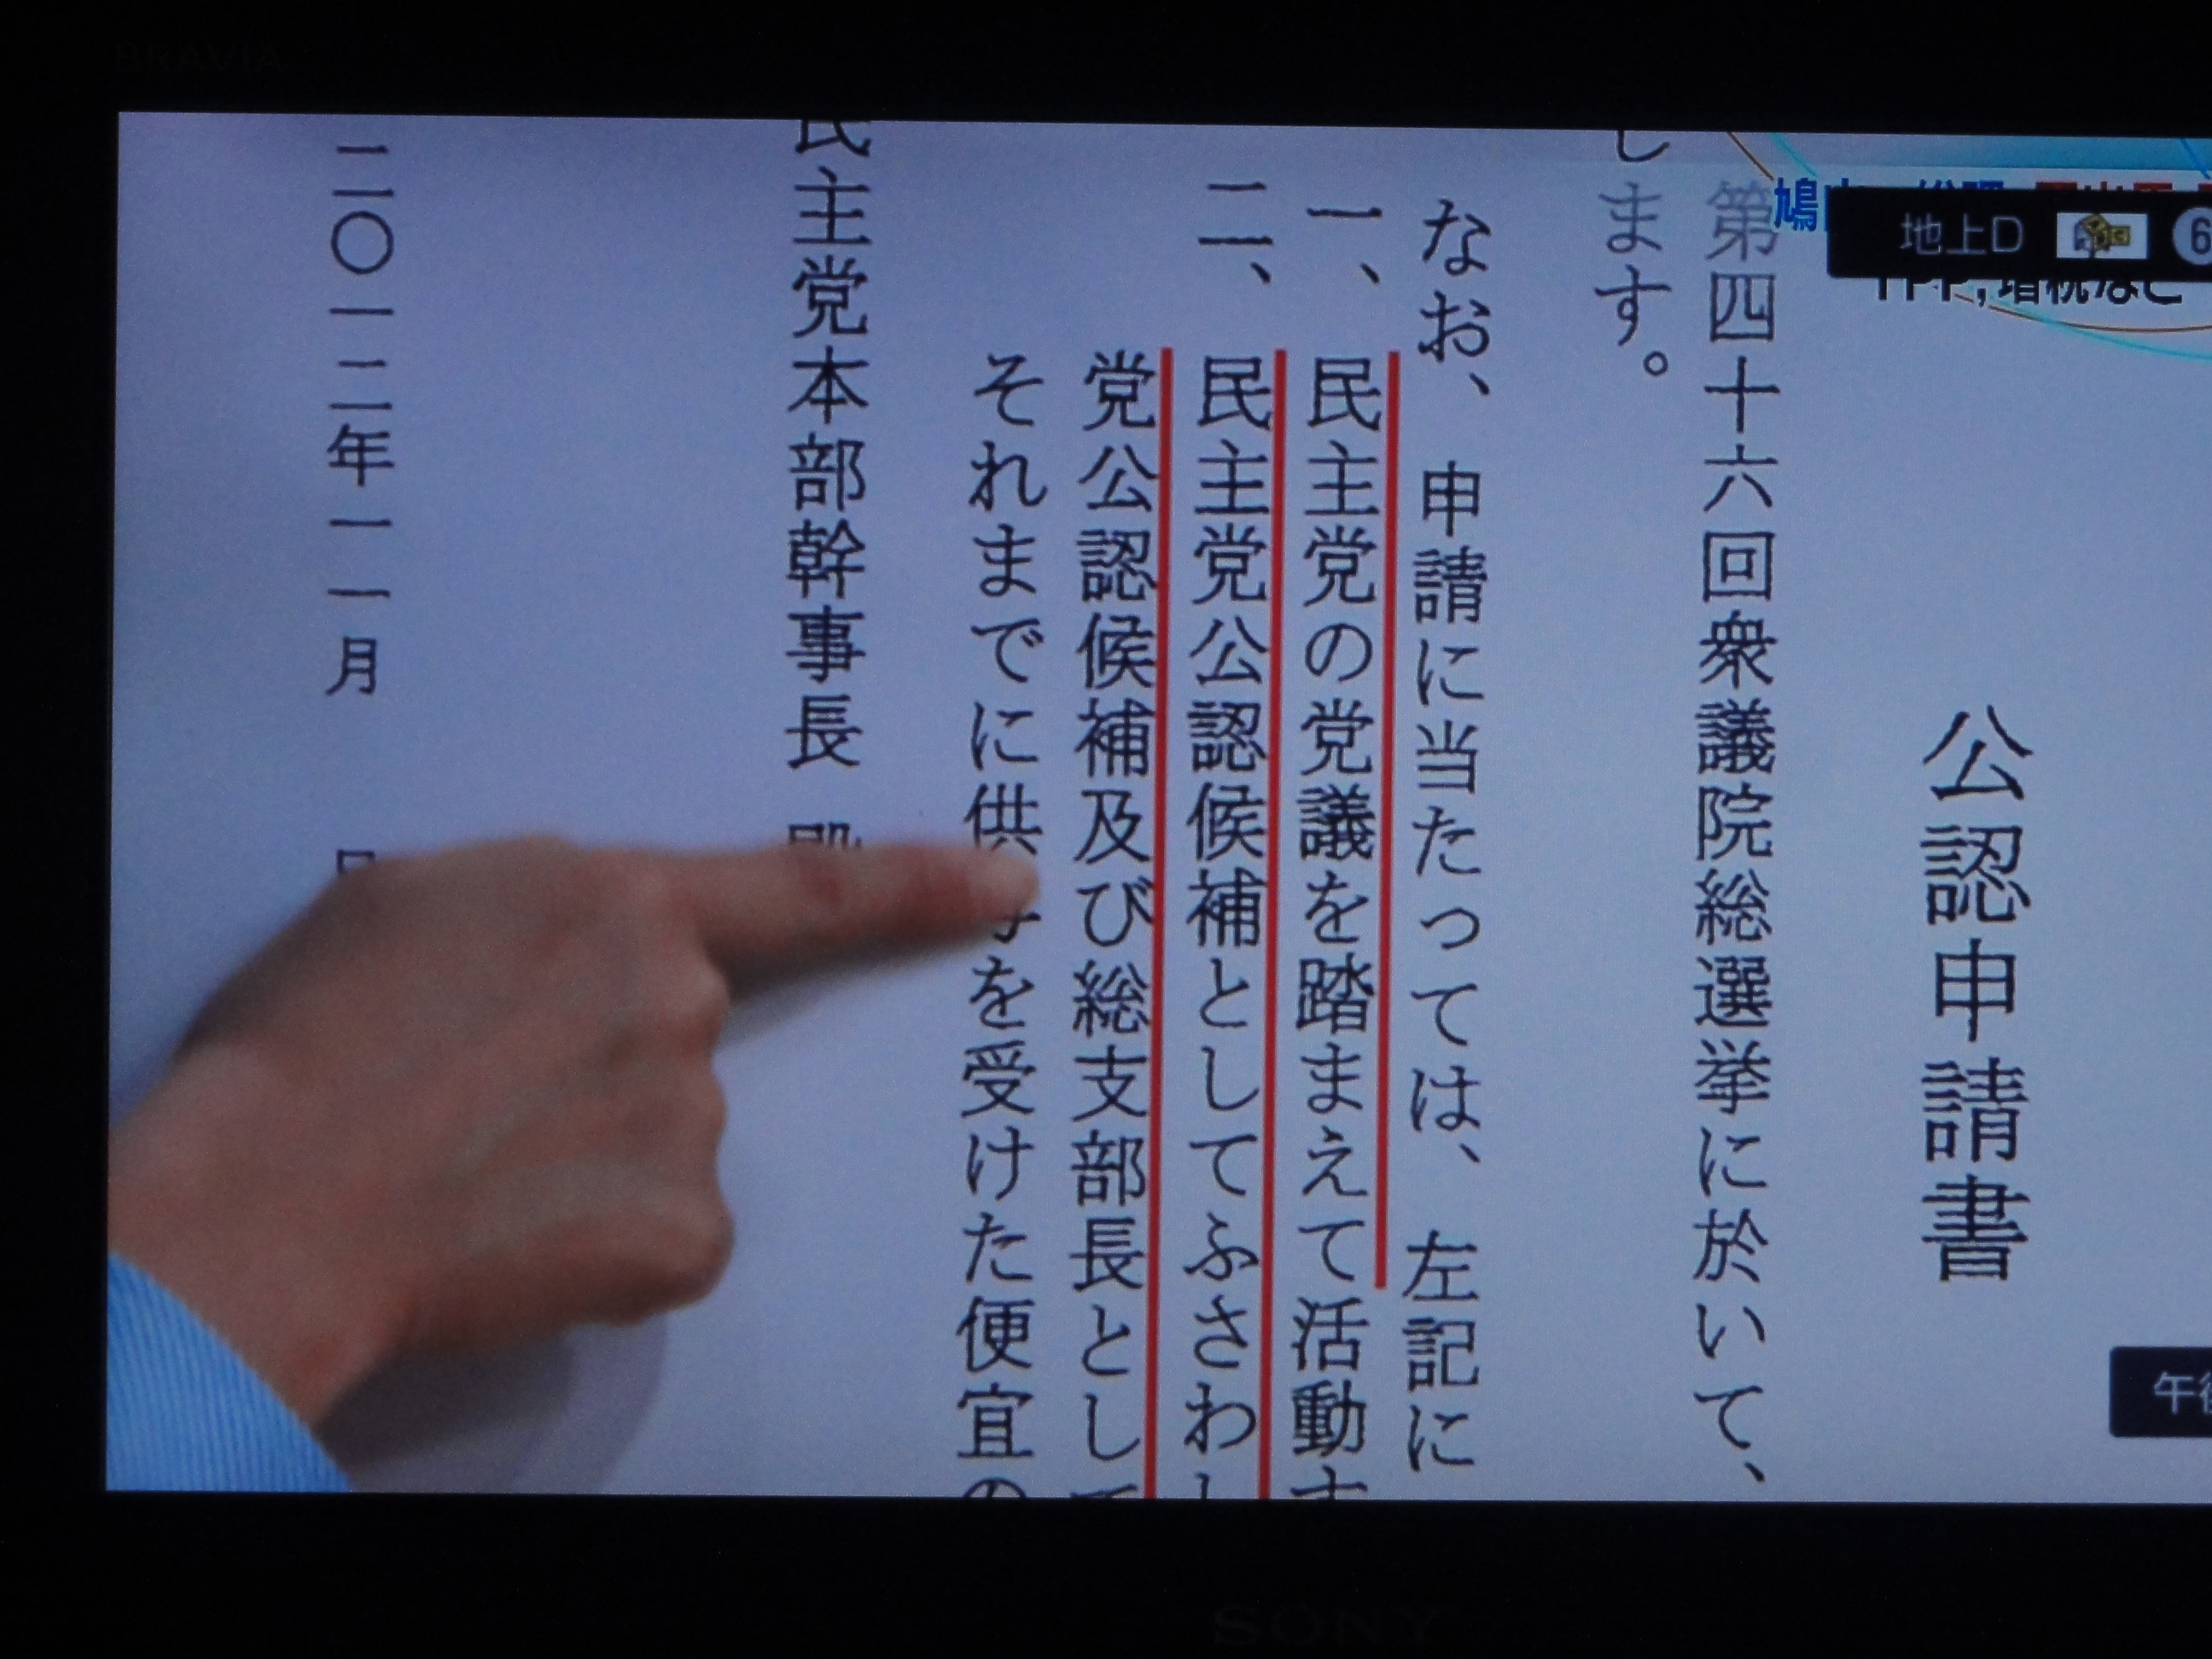 BRAVIA
地上D
TPP, 増税など
公認申請書
第四十六回衆議院総選挙に於いて、
します。
なお、申請に当たっては、左記に
一、民主党の党議を踏まえて活動
二、民主党公認候補としてふさわし
党公認候補及び総支部長として
それまでに供与を受けた便宜の
民主党本部幹事長 殿
二〇一二年一一月 日
SONY